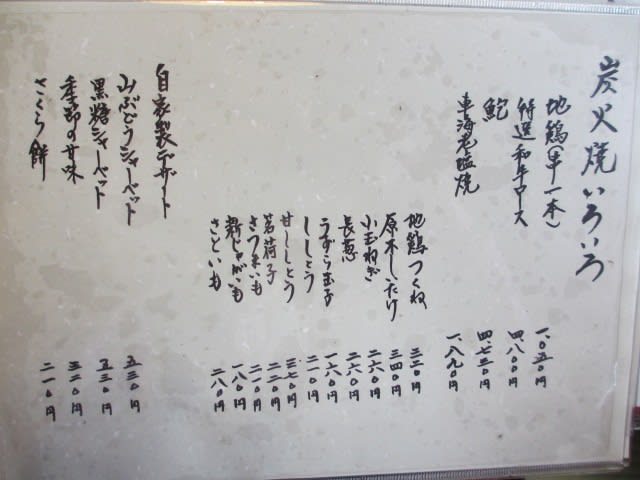 炭火焼いろいろ
地鶏(串一本) 一、〇五〇円
特選和牛ロース 四、八〇〇円
鮑 四、七二〇円
車海老塩焼 一、八九〇円
地鶏つくね 三二〇円
原木しいたけ 三四〇円
小玉ねぎ 二六〇円
長葱 二六〇円
うずら玉子 一六〇円
ししとう 二一〇円
甘ししとう 三七〇円
茗荷子 二二〇円
さつまいも 二一〇円
新じゃがいも 一八〇円
さといも 二八〇円
自家製デザート
山ぶどうシャーベット 五三〇円
黒糖シャーベット 五三〇円
季節の甘味 三二〇円
さくら餅 二一〇円